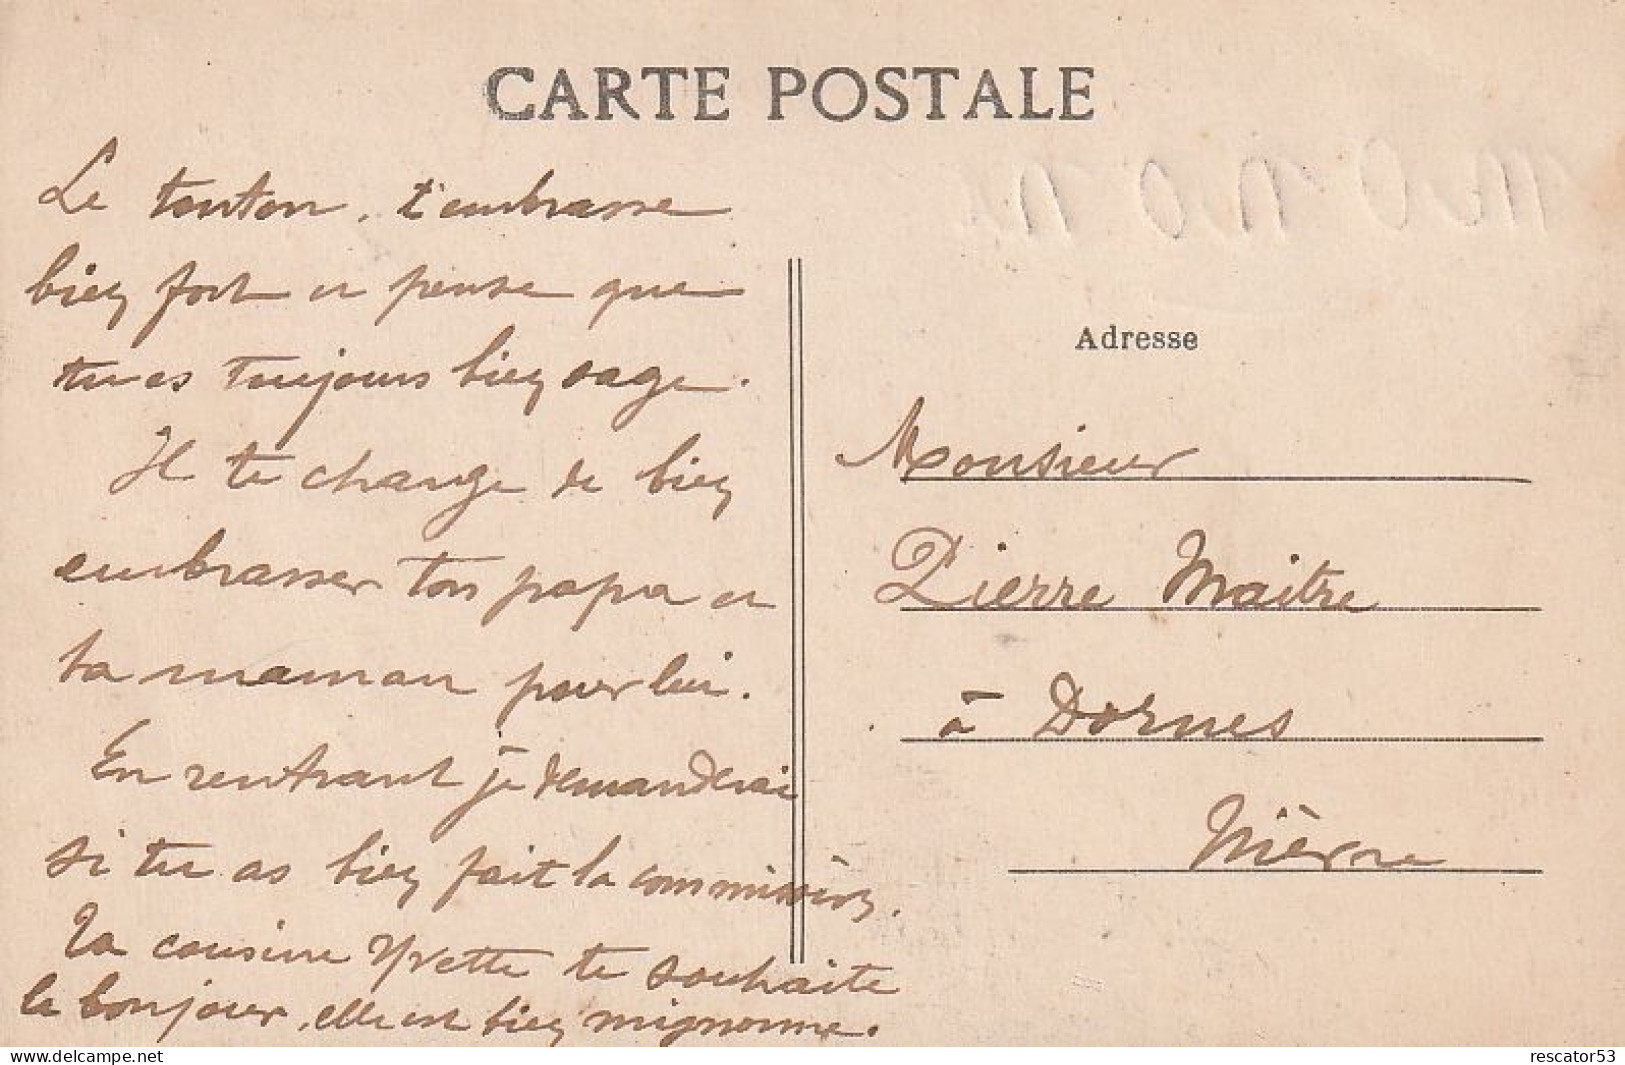 CARTE POSTALE
Le tonton, t'embrasse
bien fort et pense que
tu es toujours bien sage.
Il te charge de bien
embrasser ton papa et
ta maman pour lui.
En rentrant je demanderai
si tu as bien fait la commission.
Ta cousine Yvette te souhaite
le bonjour, elle est bien mignonne.
Adresse
Monsieur
Pierre Maitre
à Dornes
Nièvre
https://www.delcampe.net
rescator53